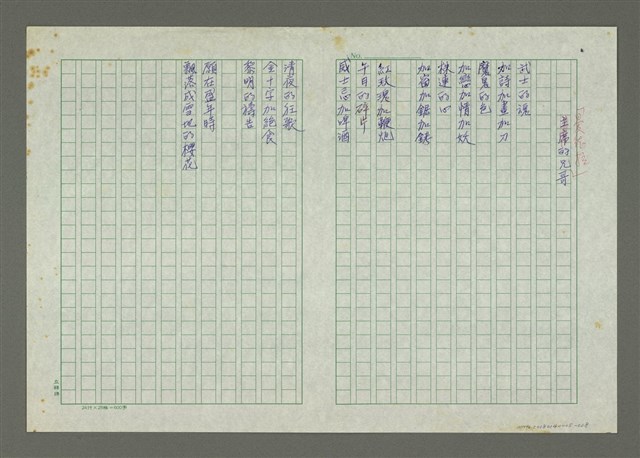 主席的兄哥
武士的魂
加詩加畫加刀
魔鬼的色
加戀加情加妖
株連的心
加當加鋸加銹
紅玫瑰加鞭炮
午日的碎片
威士忌加啤酒
清夜的狂歡
全十字加絕食
黎明的禱告
願在盛年時
飄落成雪地的櫻花
No.